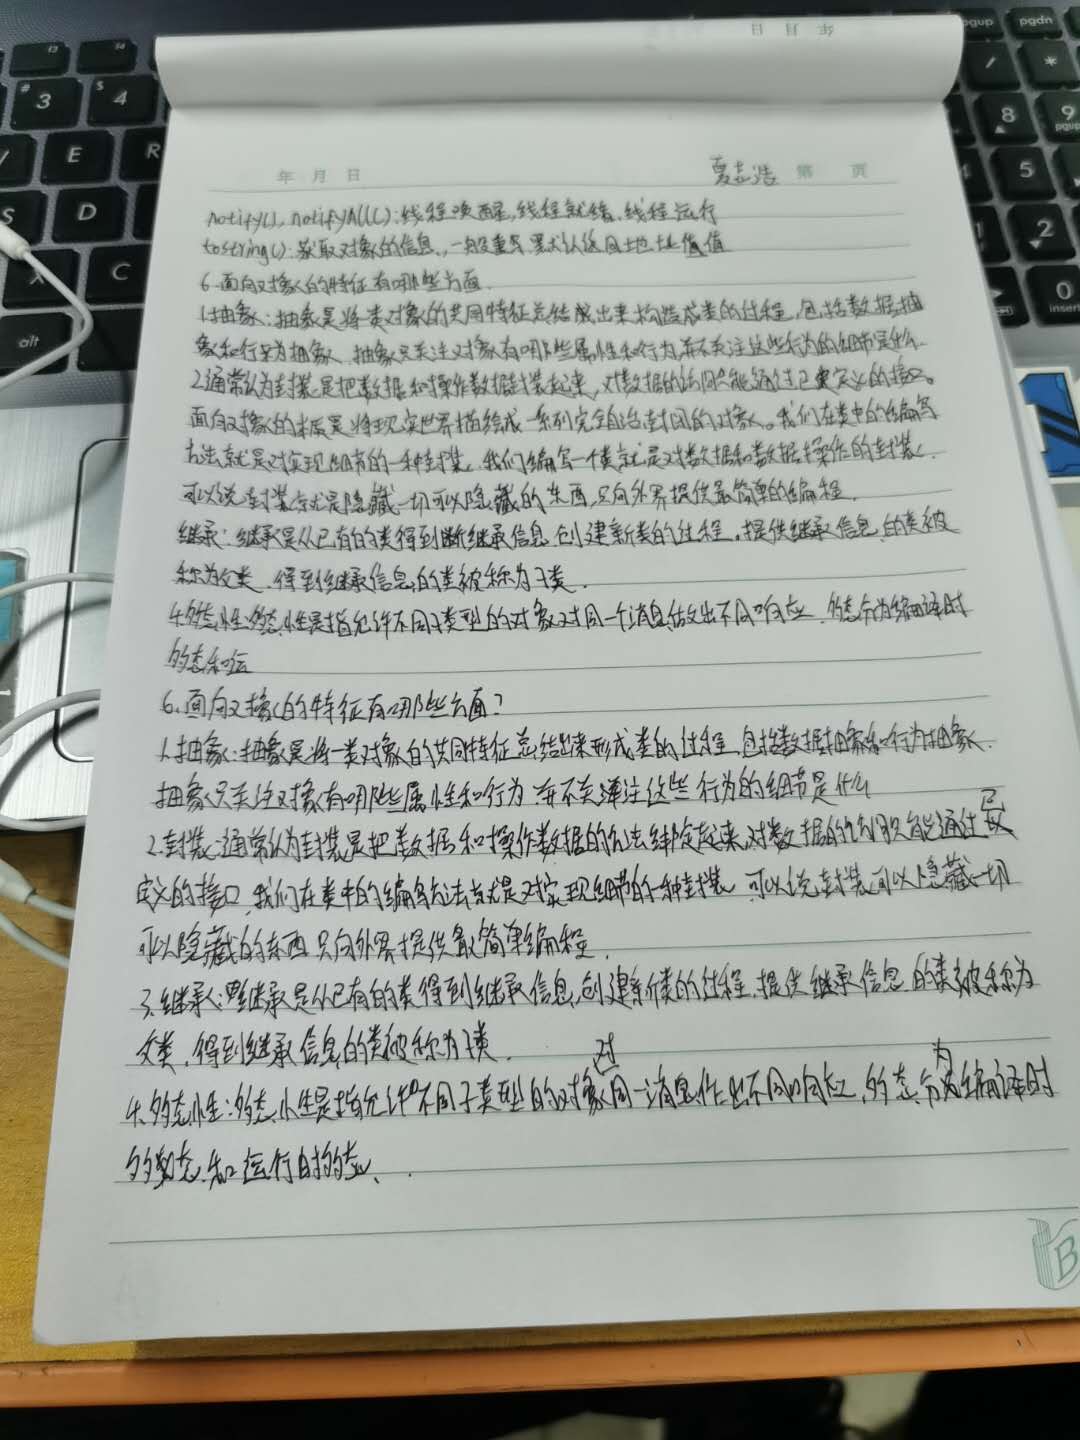 年 月 日
年 月 日 夏志浩 第 页
notify(), notifyAll(): 线程唤醒, 线程就绪, 线程运行
tostring(): 获取对象的信息, 一般重写, 默认返回地址值
6. 面向对象的特征有哪些方面
1.抽象: 抽象是将一类对象的共同特征总结出来构造成类的过程, 包括数据抽
象和行为抽象, 抽象只关注对象有哪些属性和行为, 并不关注这些行为的细节是什么
2.通常认为封装是把数据和操作数据封装起来, 对数据的访问只能通过已定义的接口。
面向对象的本质是将现实世界描绘成一系列完全自治, 封闭的对象。我们在类中的编写
方法就是对实现细节的一种封装, 我们编写一个类就是对数据和数据操作的封装,
可以说封装就是隐藏一切可以隐藏的东西, 只向外界提供最简单的编程,
继承: 继承是从已有的类得到继承信息, 创建新类的过程。提供继承信息的类被
称为父类, 得到继承信息的类被称为子类.
4.多态性: 多态性是指允许不同子类型的对象对同一个消息做出不同响应, 多态分为编译时
多态和运
6. 面向对象的特征有哪些方面?
1.抽象: 抽象是将一类对象的共同特征总结出来形成类的过程, 包括数据抽象和行为抽象,
抽象只关注对象有哪些属性和行为, 并不关注这些行为的细节是什么
2.封装: 通常认为封装是把数据和操作数据的方法绑定起来, 对数据的访问只能通过已
定义的接口, 我们在类中的编写方法就是对实现细节的一种封装, 可以说封装可以隐藏一切
可以隐藏的东西, 只向外界提供最简单编程.
3.继承: 继承是从已有的类得到继承信息, 创建新类的过程, 提供继承信息的类被称为
父类, 得到继承信息的类被称为子类.
4.多态性: 多态性是指允许不同子类型的对象对同一消息作出不同响应, 多态分为编译时
多态和运行时多态、.